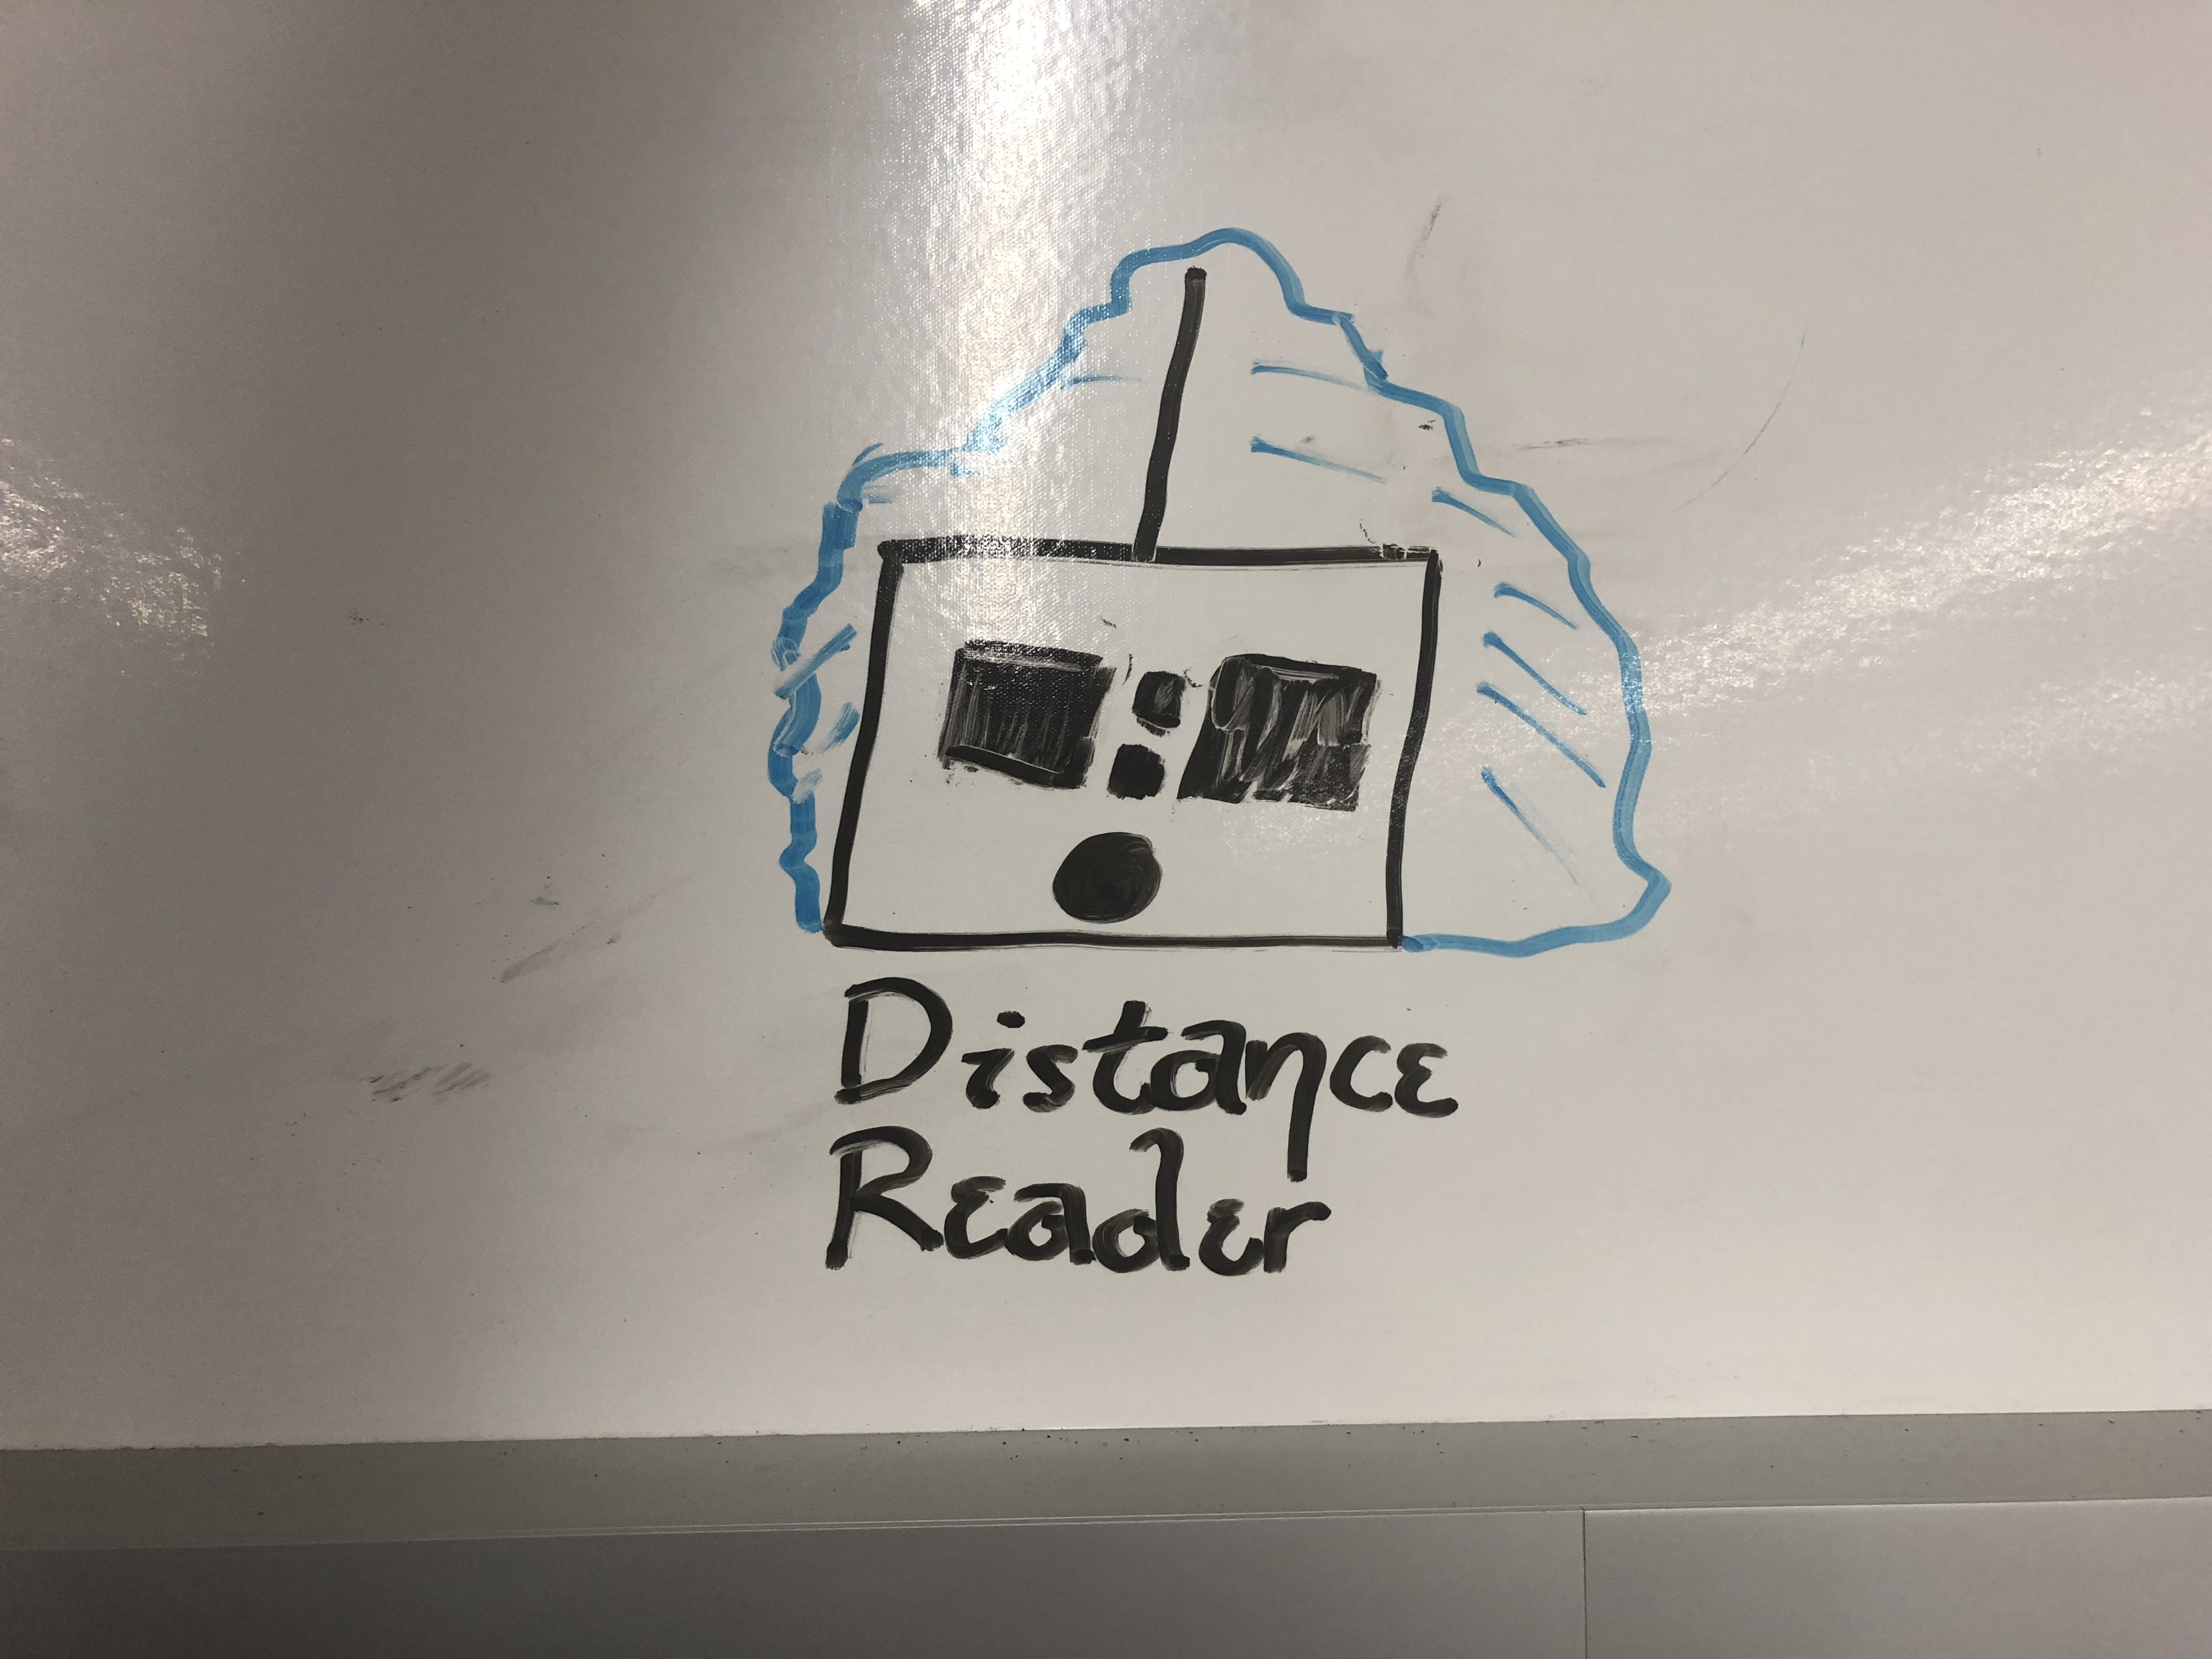 Distance
Reader